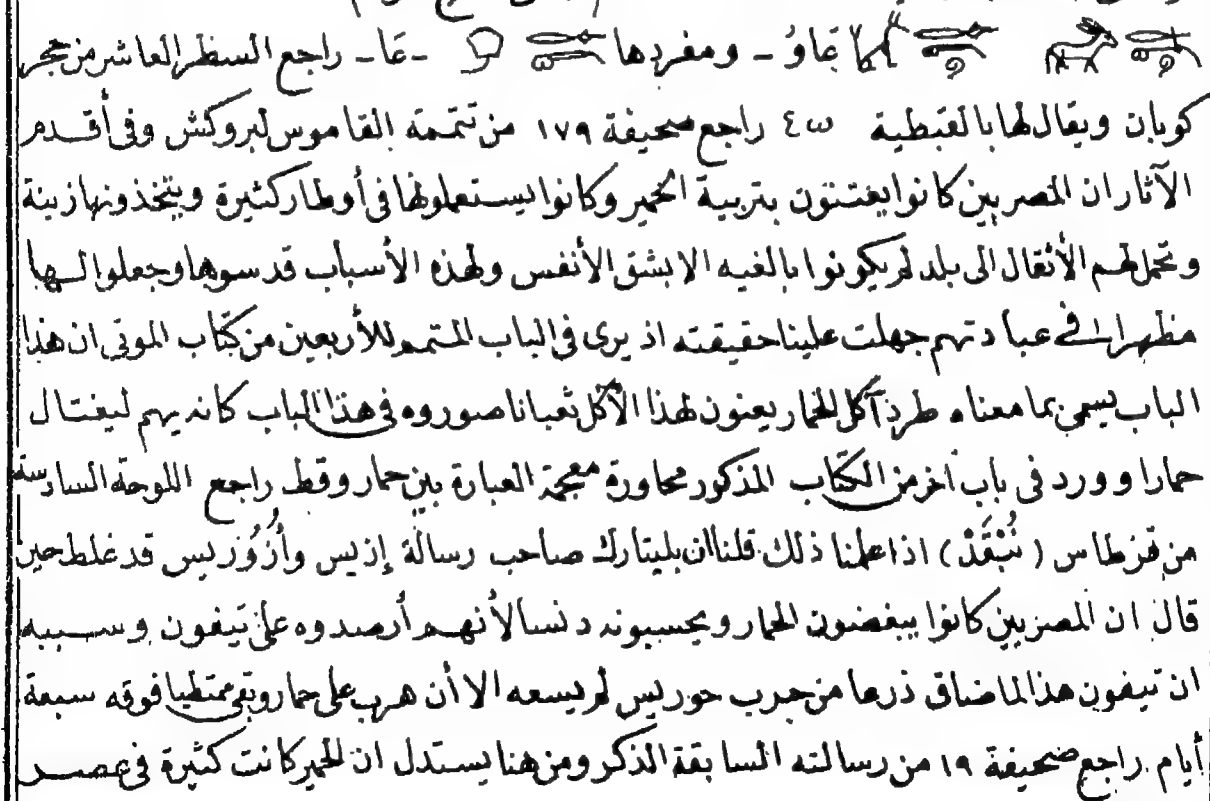 عَاوُ - ومفردها - عَا - راجع السطر العاشر من حجر
كوبان ويقال لها بالقبطية ⲉⲱ راجع صحيفة ١٧٩ من تتمة القاموس لبروكش وفى أقدم
الآثار ان المصريين كانوا يعتنون بتربية الحمير وكانوا يستعملونها فى أوطار كثيرة ويتخذونها زينة
وتحمل لهم الأثقال الى بلد لم يكونوا بالغيه الا بشق الأنفس ولهذه الأسباب قدسوها وجعلوا لها
مظهرا فى عبادتهم جهلت علينا حقيقته اذ يرى فى الباب المتمم للأربعين من كتاب الموتى ان هذا
الباب يسمى بما معناه طرد آكل الحمار يعنون لهذا الأكل ثعبانا صوروه فى هذا الباب كانه يهم ليغتال
حمارا وورد فى باب آخر من الكتاب المذكور محاورة معجمة العبارة بين حمار وقط راجع اللوحة السادسة
من قرطاس (نُبْقَدْ) اذا علمنا ذلك قلنا ان بليتارك صاحب رسالة إزيس وأُزُوريس قد غلط حين
قال ان المصريين كانوا يبغضون الحمار ويحسبونه دنسا لأنهم أرصدوه على تيفون وسببه
ان تيفون هذا لما ضاق ذرعا من حرب حوريس لم يسعه الا أن هرب على حمار وبقى ممتطيا فوقه سبعة
أيام راجع صحيفة ١٩ من رسالته السابقة الذكر ومن هنا يستدل ان الحمير كانت كثيرة فى عصر